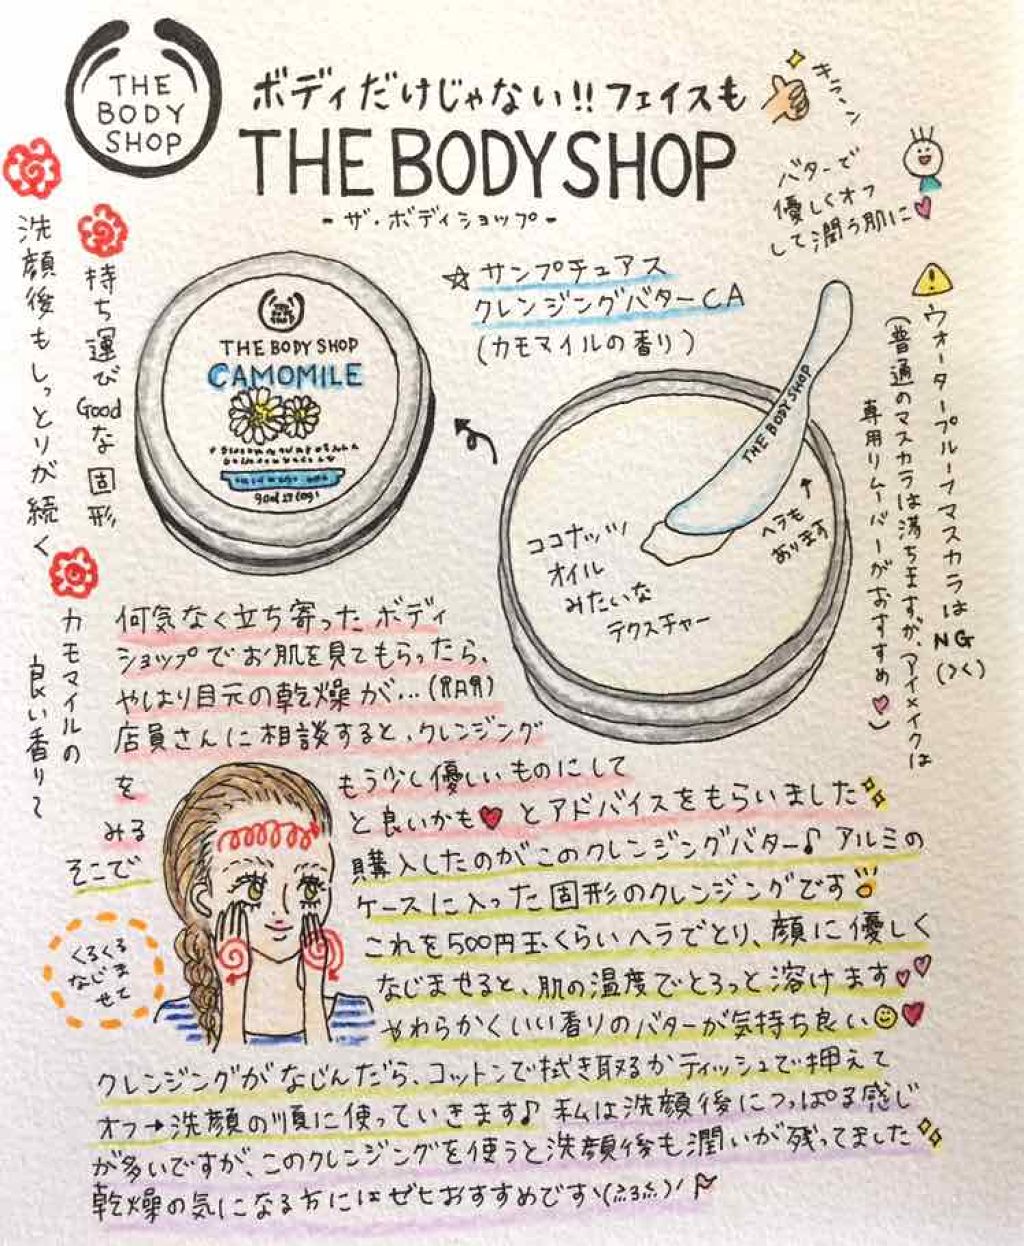 THE
BODY
SHOP
ボディだけじゃない!!フェイスも
THE BODY SHOP
-ザ・ボディショップ-
キラーン
バターで
優しくオフ
して潤う肌に
洗顔後もしっとりが続く
持ち運びGoodな固形
カモマイルの
良い香り〜
☆サンプチュアス
クレンジングバターCA
(カモマイルの香り)
THE BODY SHOP
THE BODY SHOP
CAMOMILE
THE BODY SHOP
ヘラも
あります
ココナッツ
オイル
みたいな
テクスチャー
ウォータープルーフマスカラはNG
(普通のマスカラは落ちますが、アイメイクは
専用リムーバーがおすすめ)
何気なく立ち寄ったボディ
ショップでお肌を見てもらったら、
やはり目元の乾燥が…
店員さんに相談すると、クレンジング
を もう少し優しいものにして
みる と良いかも とアドバイスをもらいました
そこで 購入したのがこのクレンジングバター♪アルミの
ケースに入った固形のクレンジングです
これを500円玉くらいヘラでとり、顔に優しく
なじませると、肌の温度でとろっと溶けます
やわらかくいい香りのバターが気持ち良い
くるくる
なじま
せて
クレンジングがなじんだら、コットンで拭き取るかティッシュで押えて
オフ→洗顔の順に使っていきます♪私は洗顔後につっぱる感じ
が多いですが、このクレンジングを使うと洗顔後も潤いが残ってました
乾燥の気になる方にはぜひおすすめです